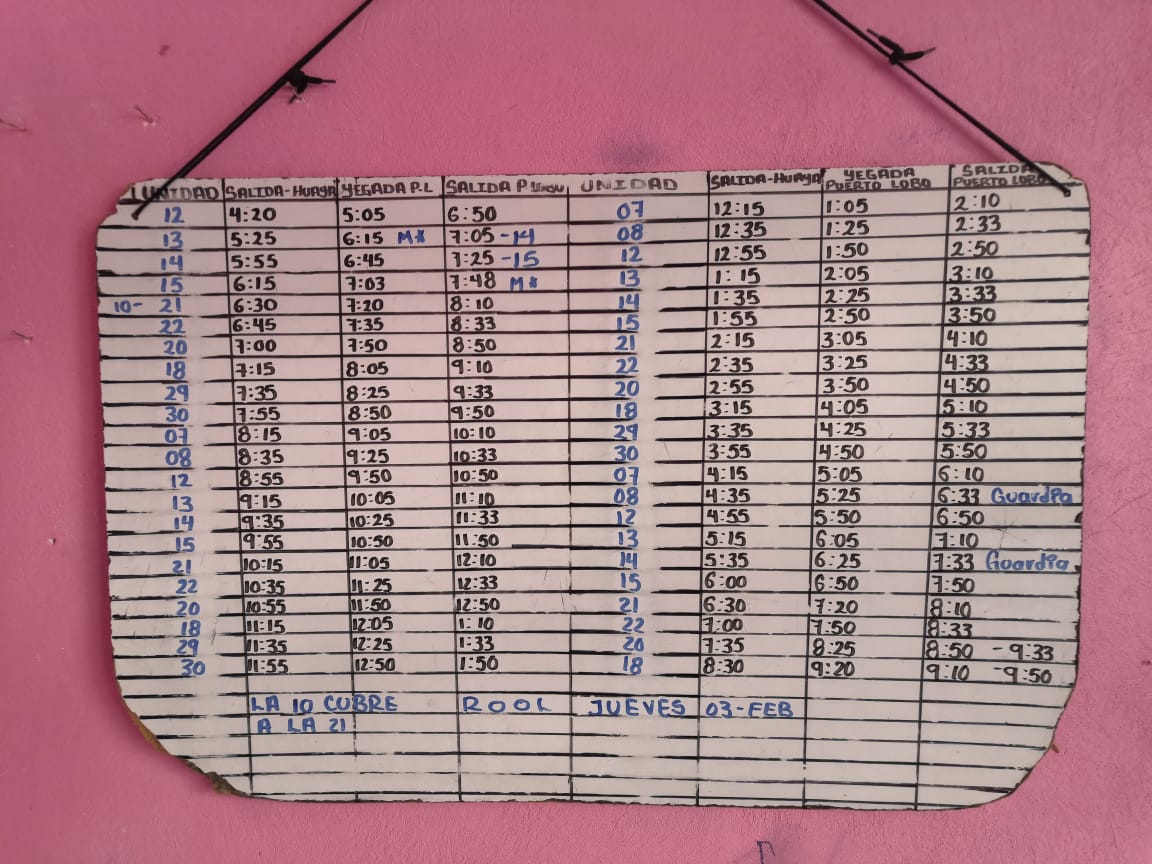 UNIDAD SALIDA-HUAYA YEGADA P.L SALIDA P. LOBOV UNIDAD SALIDA-HUAYA YEGADA PUERTO LOBO SALIDA PUERTO LOBO
12 4:20 5:05 6:50 07 12:15 1:05 2:10
13 5:25 6:15 M* 7:05 -14 08 12:35 1:25 2:33
14 5:55 6:45 7:25 -15 12 12:55 1:50 2:50
15 6:15 7:03 7:48 M* 13 1:15 2:05 3:10
10- 21 6:30 7:20 8:10 14 1:35 2:25 3:33
22 6:45 7:35 8:33 15 1:55 2:50 3:50
20 7:00 7:50 8:50 21 2:15 3:05 4:10
18 7:15 8:05 9:10 22 2:35 3:25 4:33
29 7:35 8:25 9:33 20 2:55 3:50 4:50
30 7:55 8:50 9:50 18 3:15 4:05 5:10
07 8:15 9:05 10:10 29 3:35 4:25 5:33
08 8:35 9:25 10:33 30 3:55 4:50 5:50
12 8:55 9:50 10:50 07 4:15 5:05 6:10
13 9:15 10:05 11:10 08 4:35 5:25 6:33 Guardia
14 9:35 10:25 11:33 12 4:55 5:50 6:50
15 9:55 10:50 11:50 13 5:15 6:05 7:10
21 10:15 11:05 12:10 14 5:35 6:25 7:33 Guardia
22 10:35 11:25 12:33 15 6:00 6:50 7:50
20 10:55 11:50 12:50 21 6:30 7:20 8:10
18 11:15 12:05 1:10 22 7:00 7:50 8:33
29 11:35 12:25 1:33 20 7:35 8:25 8:50 - 9:33
30 11:55 12:50 1:50 18 8:30 9:20 9:10 - 9:50
LA 10 CUBRE ROOL JUEVES 03-FEB
A LA 21